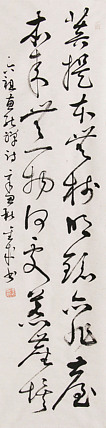 菩提本無樹明鏡亦非臺
本來無一物何處惹塵埃
六祖惠能禪詩辛丑秋書